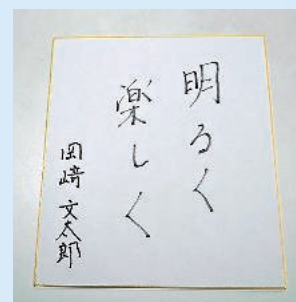 明るく
楽しく
岡崎 文太郎